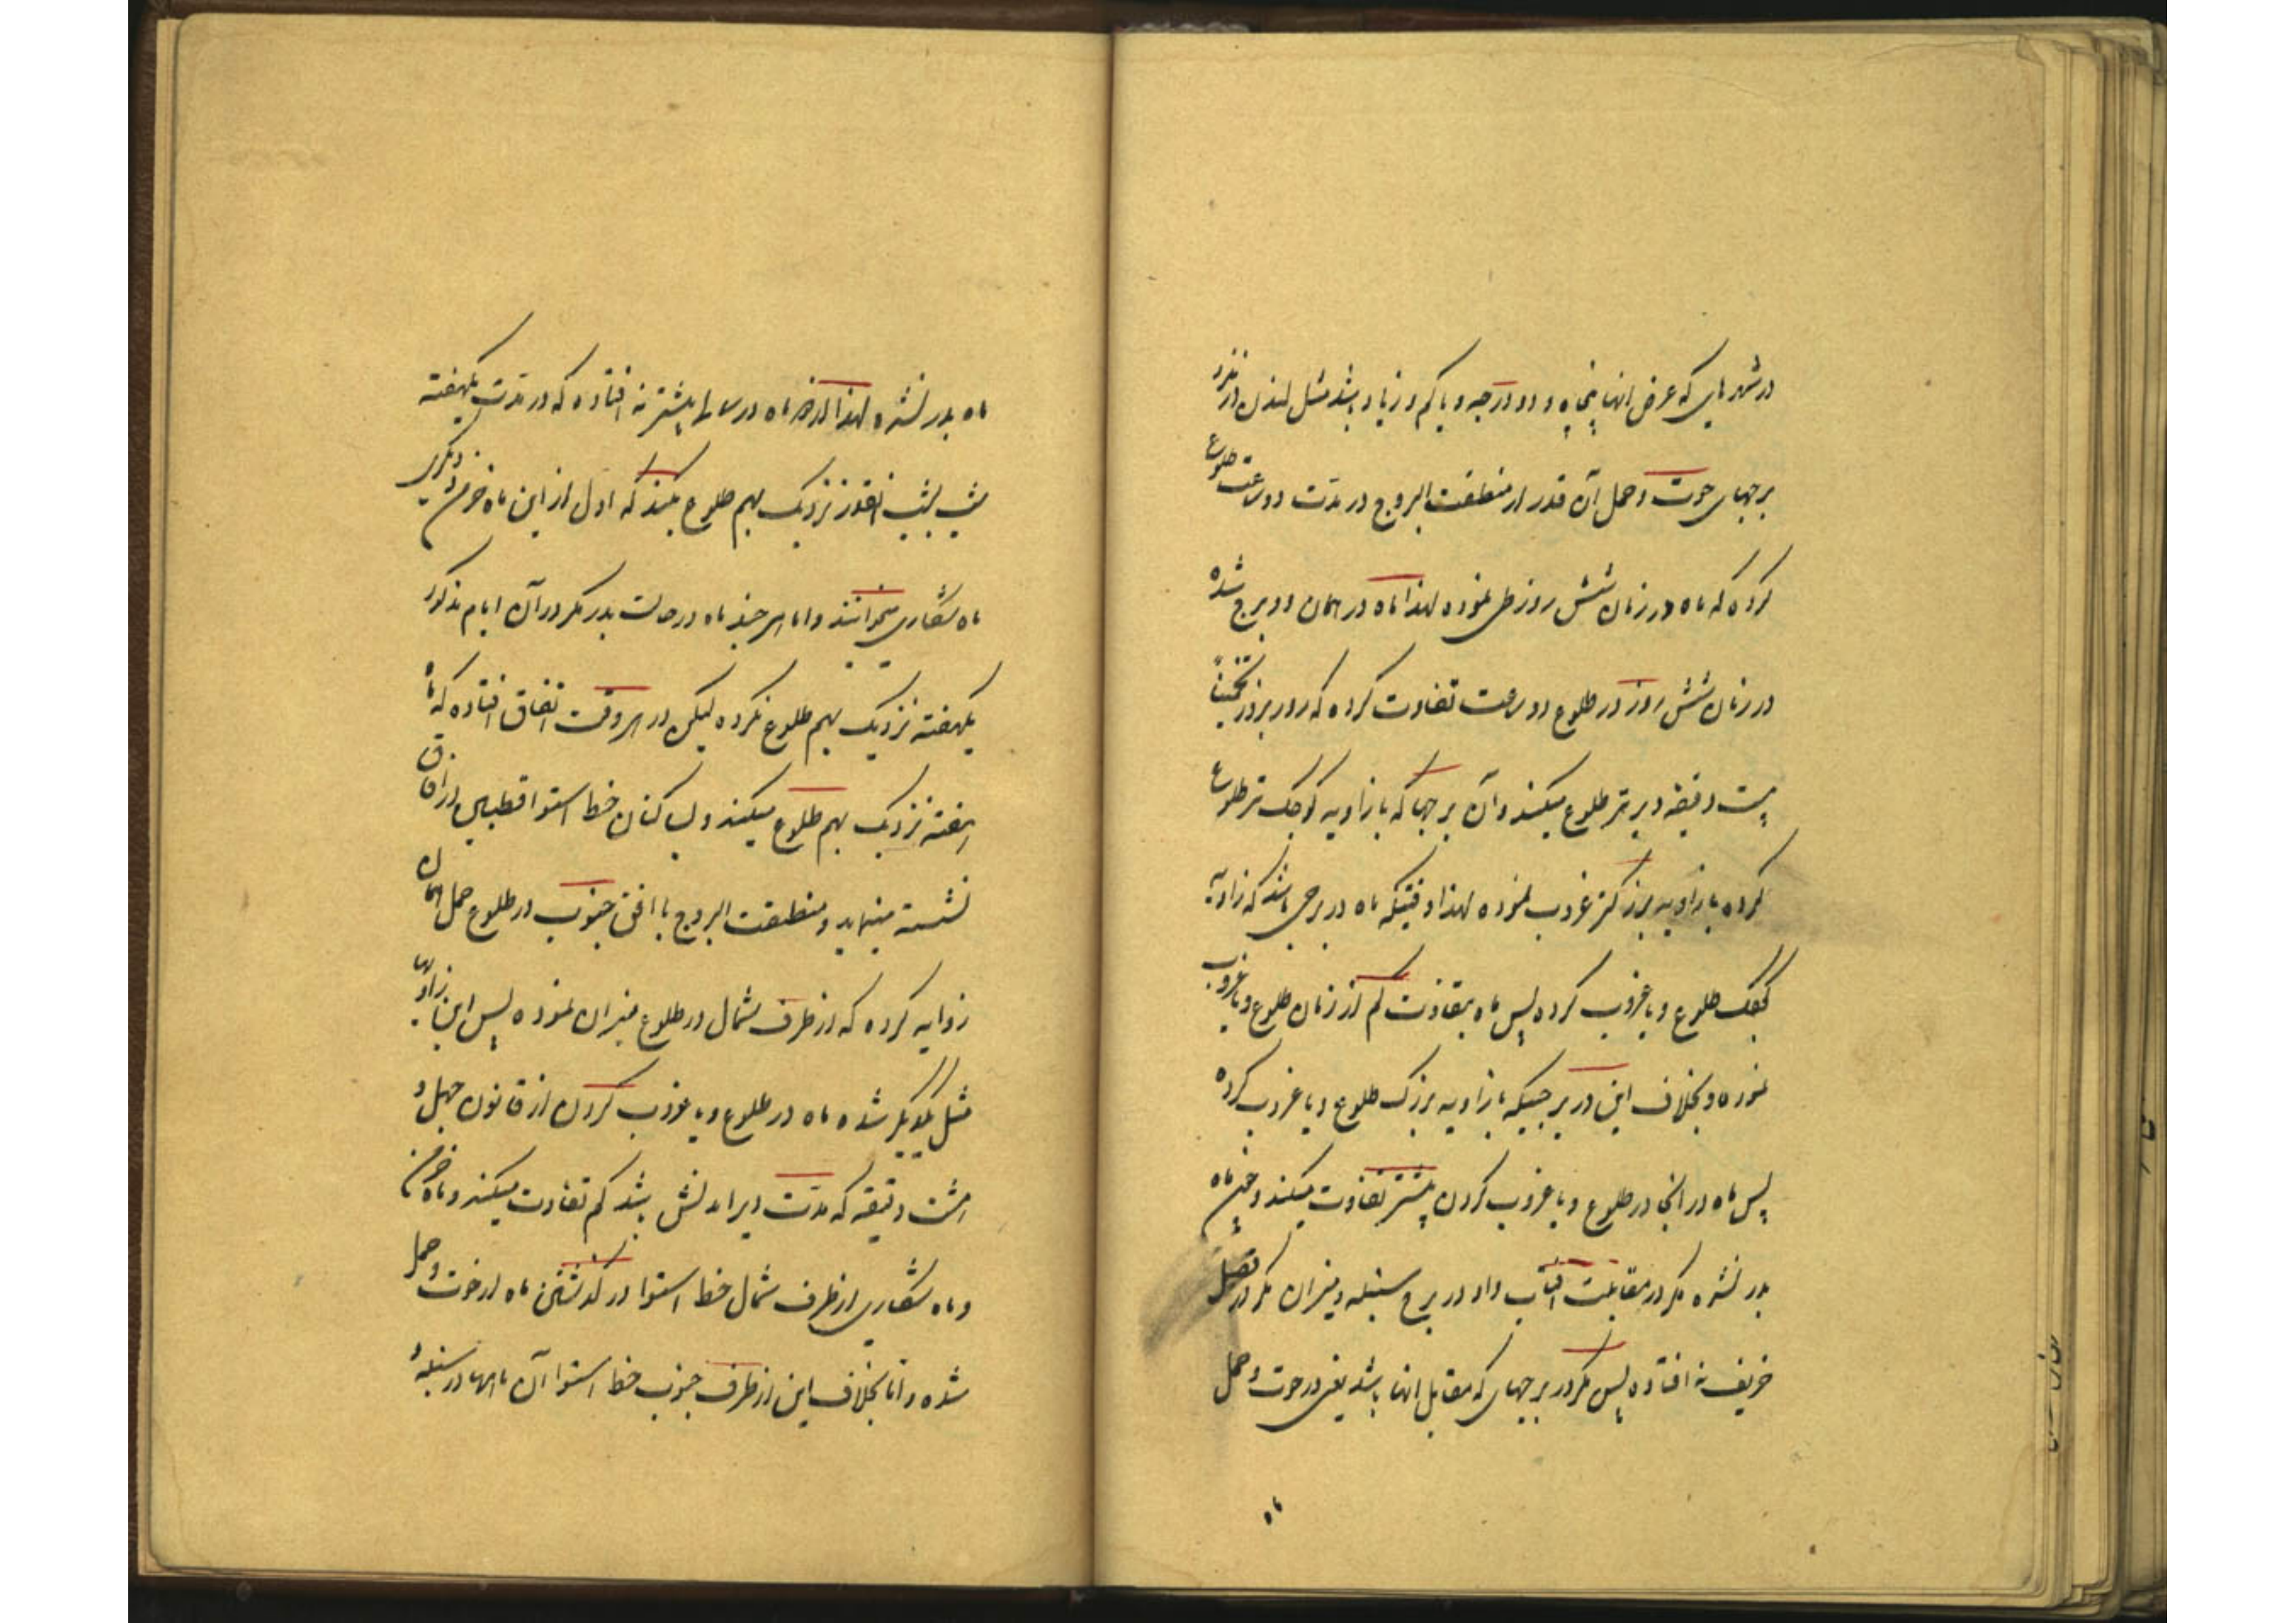 در شهرهایی که عرض انها پنجاه و دو درجه و یا کم و زیاد باشد مثل لندن در
برجهای حوت و حمل آن قدر از منطقت البروج در مدّت دو ساعت طلوع
کرده که ماه در زمان شش روز طی نموده لهذا ماه در همان دو برج شده
در زمان شش روز در طلوع دو ساعت تفاوت کرده که روز بروز تخمیناً
بیست دقیقه دیرتر طلوع میکند و آن برجها که با زاویه کوچک تر طلوع
کرده با زاویه بزرگتر غروب نموده لهذا وقتیکه ماه در برجی باشد که زاویه
کوچک طلوع و یا غروب کرده پس ماه بتفاوت کم از زمان طلوع و یا غروب
نموده و بخلاف این در برجیکه با زاویه بزرگ طلوع و یا غروب کرده
پس ماه در انجا در طلوع و یا غروب کردن بیشتر تفاوت میکند و چون ماه
بدر نشده مگر در مقابلت افتاب و او در برج سنبله و میزان مگر در فصل
خریف نه افتاده پس مگر در برجهای که مقابل انها باشد یعنی در حوت و حمل
ماه
ماه بدر نشده لهذا ماه در سالها بیشتر نه افتاده که در مدّت یکهفته
شب بشب انقدر نزدیک بهم طلوع میکند که اول از این ماه خرمن و دیگری
ماه شکاری میخوانند و اما هر چند ماه در حالت بدر مگر در آن ایام مذکور
یکهفته نزدیک بهم طلوع نکرده لیکن در هر وقت اتفاق افتاده که ماه
هفته نزدیک بهم طلوع میکند و بساکنان خط استوا قطبین در افاق
نشسته مینماید و منطقت البروج با افق جنوب در طلوع حمل همان
زوایه کرده که از طرف شمال در طلوع میزان نموده پس این زاویها
مثل یکدیگر شده ماه در طلوع و یا غروب کردن از قانون چهل و
هشت دقیقه که مدّت دیر امدنش باشد کم تفاوت میکند و ماه خرمن
و ماه شکاری از طرف شمال خط استوا در گذشتن ماه از حوت و حمل
شده و اما بخلاف این از طرف جنوب خط استوا آن ماهها در سنبله و